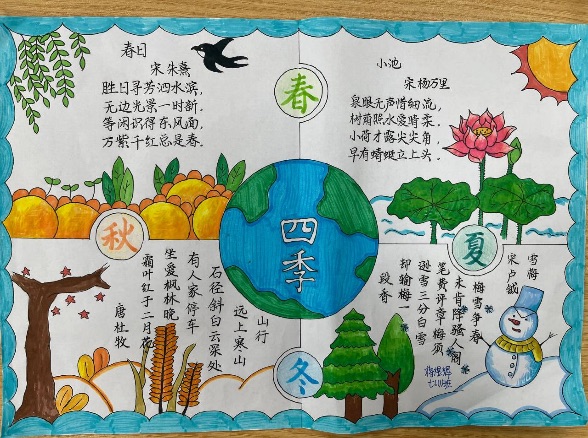 春日
宋 朱熹
胜日寻芳泗水滨，
无边光景一时新.
等闲识得东风面，
万紫千红总是春.
春
小池
宋 杨万里
泉眼无声惜细流，
树荫照水爱晴柔.
小荷才露尖尖角，
早有蜻蜓立上头.
四季
秋
夏
冬
山行
远上寒山
石径斜白云深处
有人家停车
坐爱枫林晚
霜叶红于二月花
唐杜牧
雪梅
宋卢钺
梅雪争春
未肯降骚人阁
笔费评章梅须
逊雪三分白雪
却输梅一
段香